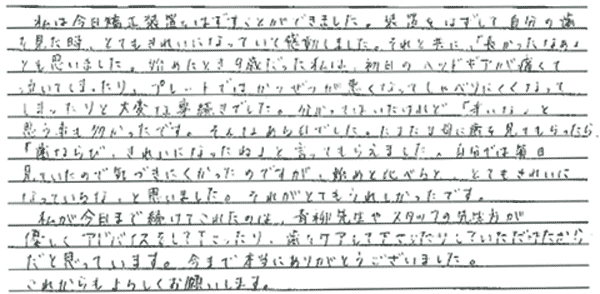 私は今日矯正装置をはずすことができました。装置をはずして自分の歯
を見た時、とてもきれいになっていて感動しました。それと共に、「長かったなあ」
とも思いました。始めたとき9歳だった私は、初日のヘッドギアが痛くて
泣いてしまったり、プレートではかつぜつが悪くなってしゃべりにくくなって
しまったりと大変な事続きでした。分かってはいたけれど「辛いな」と
思う事も多かったです。そんなある日でした。たまたま母に歯を見てもらったら
「歯ならび、きれいになったね」と言ってもらえました。自分では毎日
見ていたので気づきにくかったのですが、始めと比べると、とてもきれいに
なっているな、と思いました。それがとてもうれしかったです。
私が今日まで続けてこれたのは、青柳先生やスタッフの先生方が
優しくアドバイスをして下さったり、歯をケアして下さったりしていただけたから
だと思っています。今まで本当にありがとうございました。
これからもよろしくお願いします。